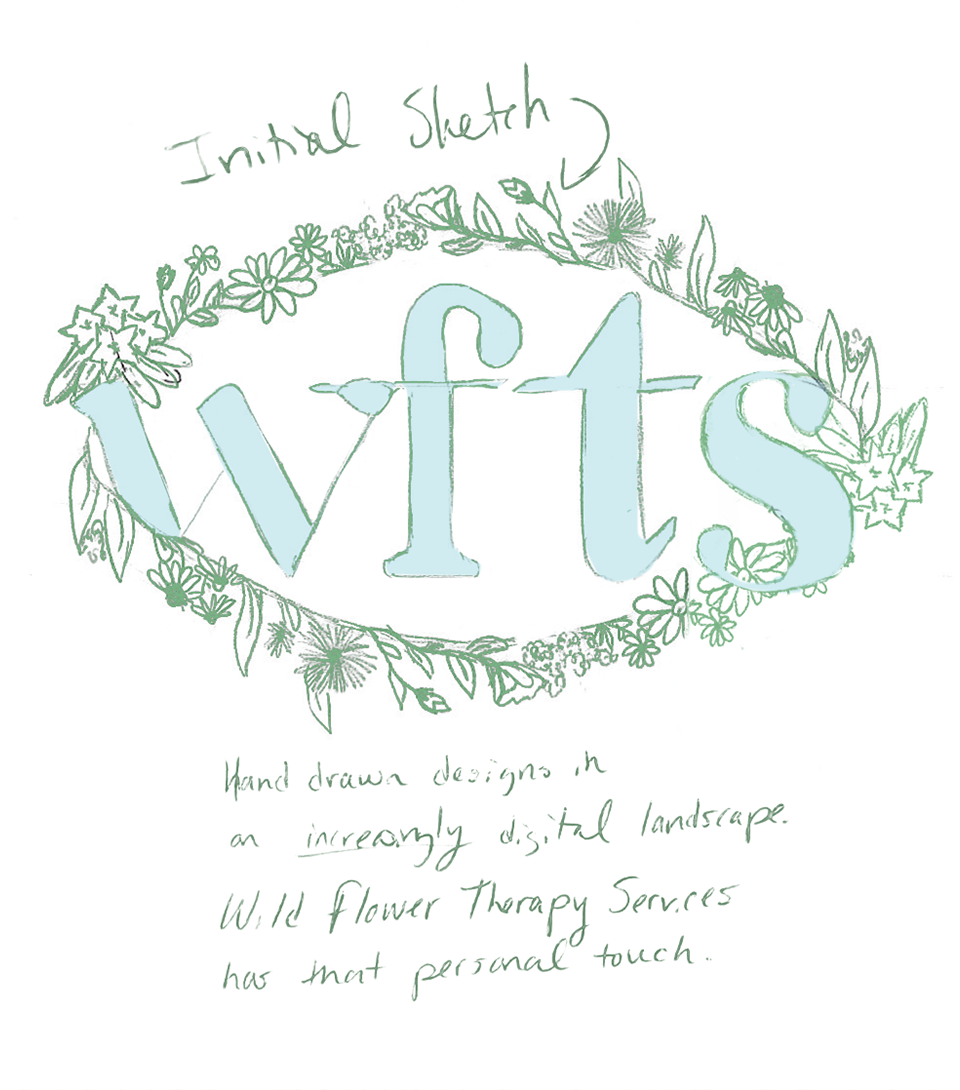 Initial Sketch
wfts
Hand drawn designs in
an increasingly digital landscape.
Wild Flower Therapy Services
has that personal touch.